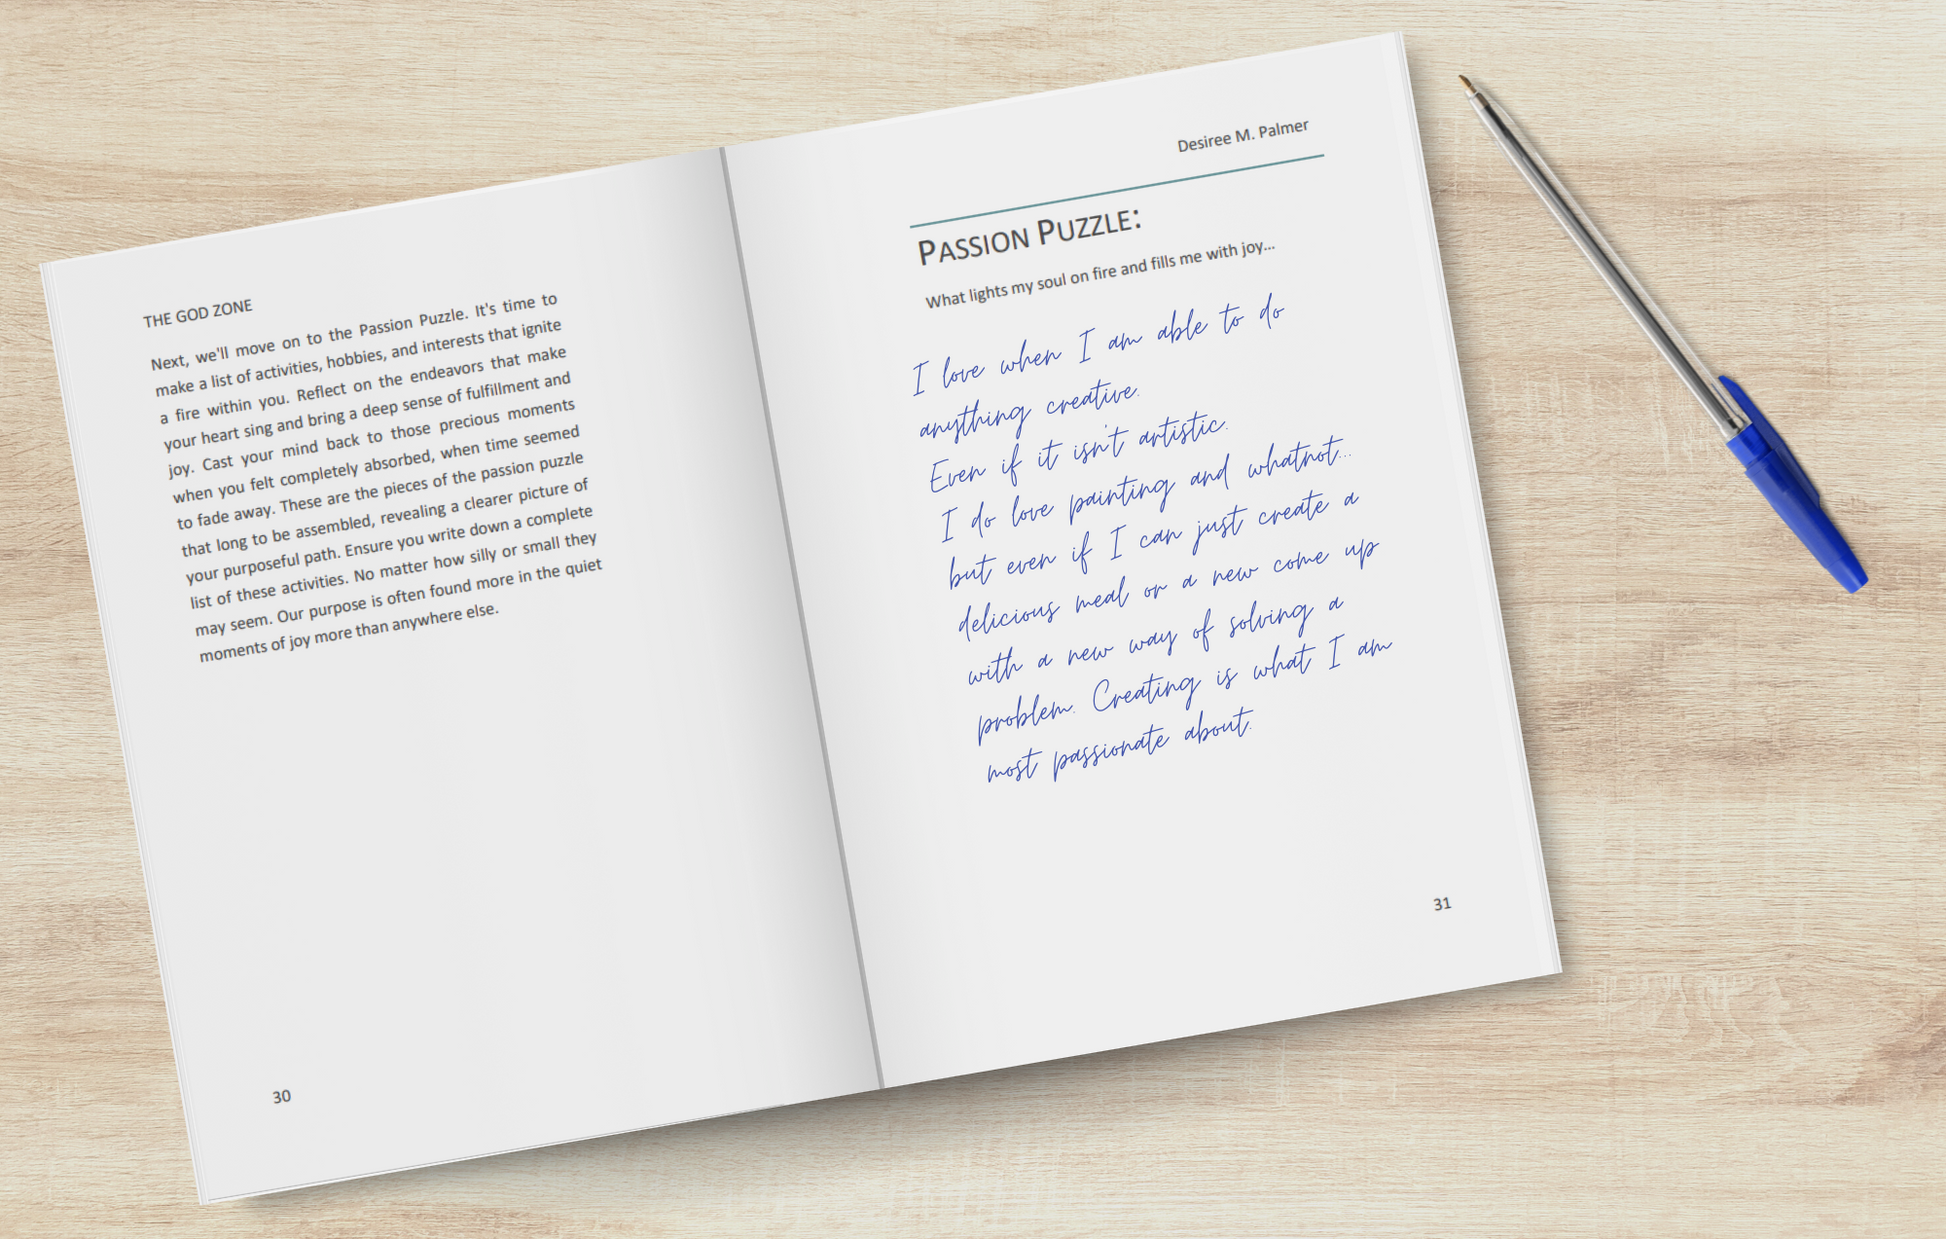 THE GOD ZONE
Next, we'll move on to the Passion Puzzle. It's time to
make a list of activities, hobbies, and interests that ignite
a fire within you. Reflect on the endeavors that make
your heart sing and bring a deep sense of fulfillment and
joy. Cast your mind back to those precious moments
when you felt completely absorbed, when time seemed
to fade away. These are the pieces of the passion puzzle
that long to be assembled, revealing a clearer picture of
your purposeful path. Ensure you write down a complete
list of these activities. No matter how silly or small they
may seem. Our purpose is often found more in the quiet
moments of joy more than anywhere else.
30
Desiree M. Palmer
PASSION PUZZLE:
What lights my soul on fire and fills me with joy...
I love when I am able to do
anything creative.
Even if it isn't artistic.
I do love painting and whatnot...
but even if I can just create a
delicious meal or a new come up
with a new way of solving a
problem. Creating is what I am
most passionate about.
31